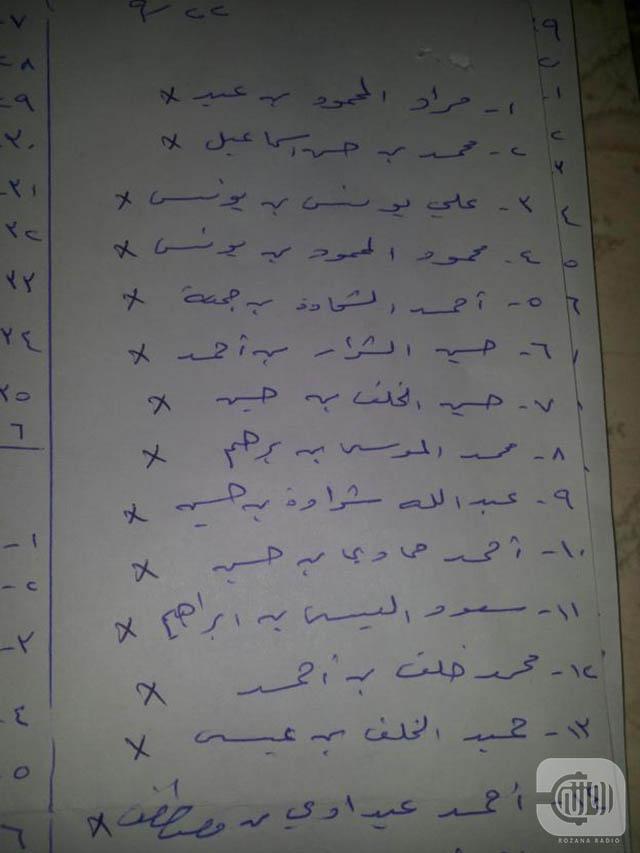 ٩/٢٢
١- مراد المحمود بن عبيد x
٢- محمد بن حسن اسماعيل x
٣- علي يونس بن يونس x
٤- محمود المحمود بن يونس x
٥- أحمد الشحادة بن جمعة x
٦- حسين بن أحمد x
٧- حسين الخلف بن حسين x
٨- محمد الموسى بن برهيم x
٩- عبد الله بن حسين x
١٠- أحمد حمادي بن حسين x
١١- سعود العيسى بن ابراهيم x
١٢- محمد خلف بن أحمد x
١٣- حميد الخلف بن عيسى x
١٤- أحمد عيداوي بن مصطفى x
ROZANA RADIO